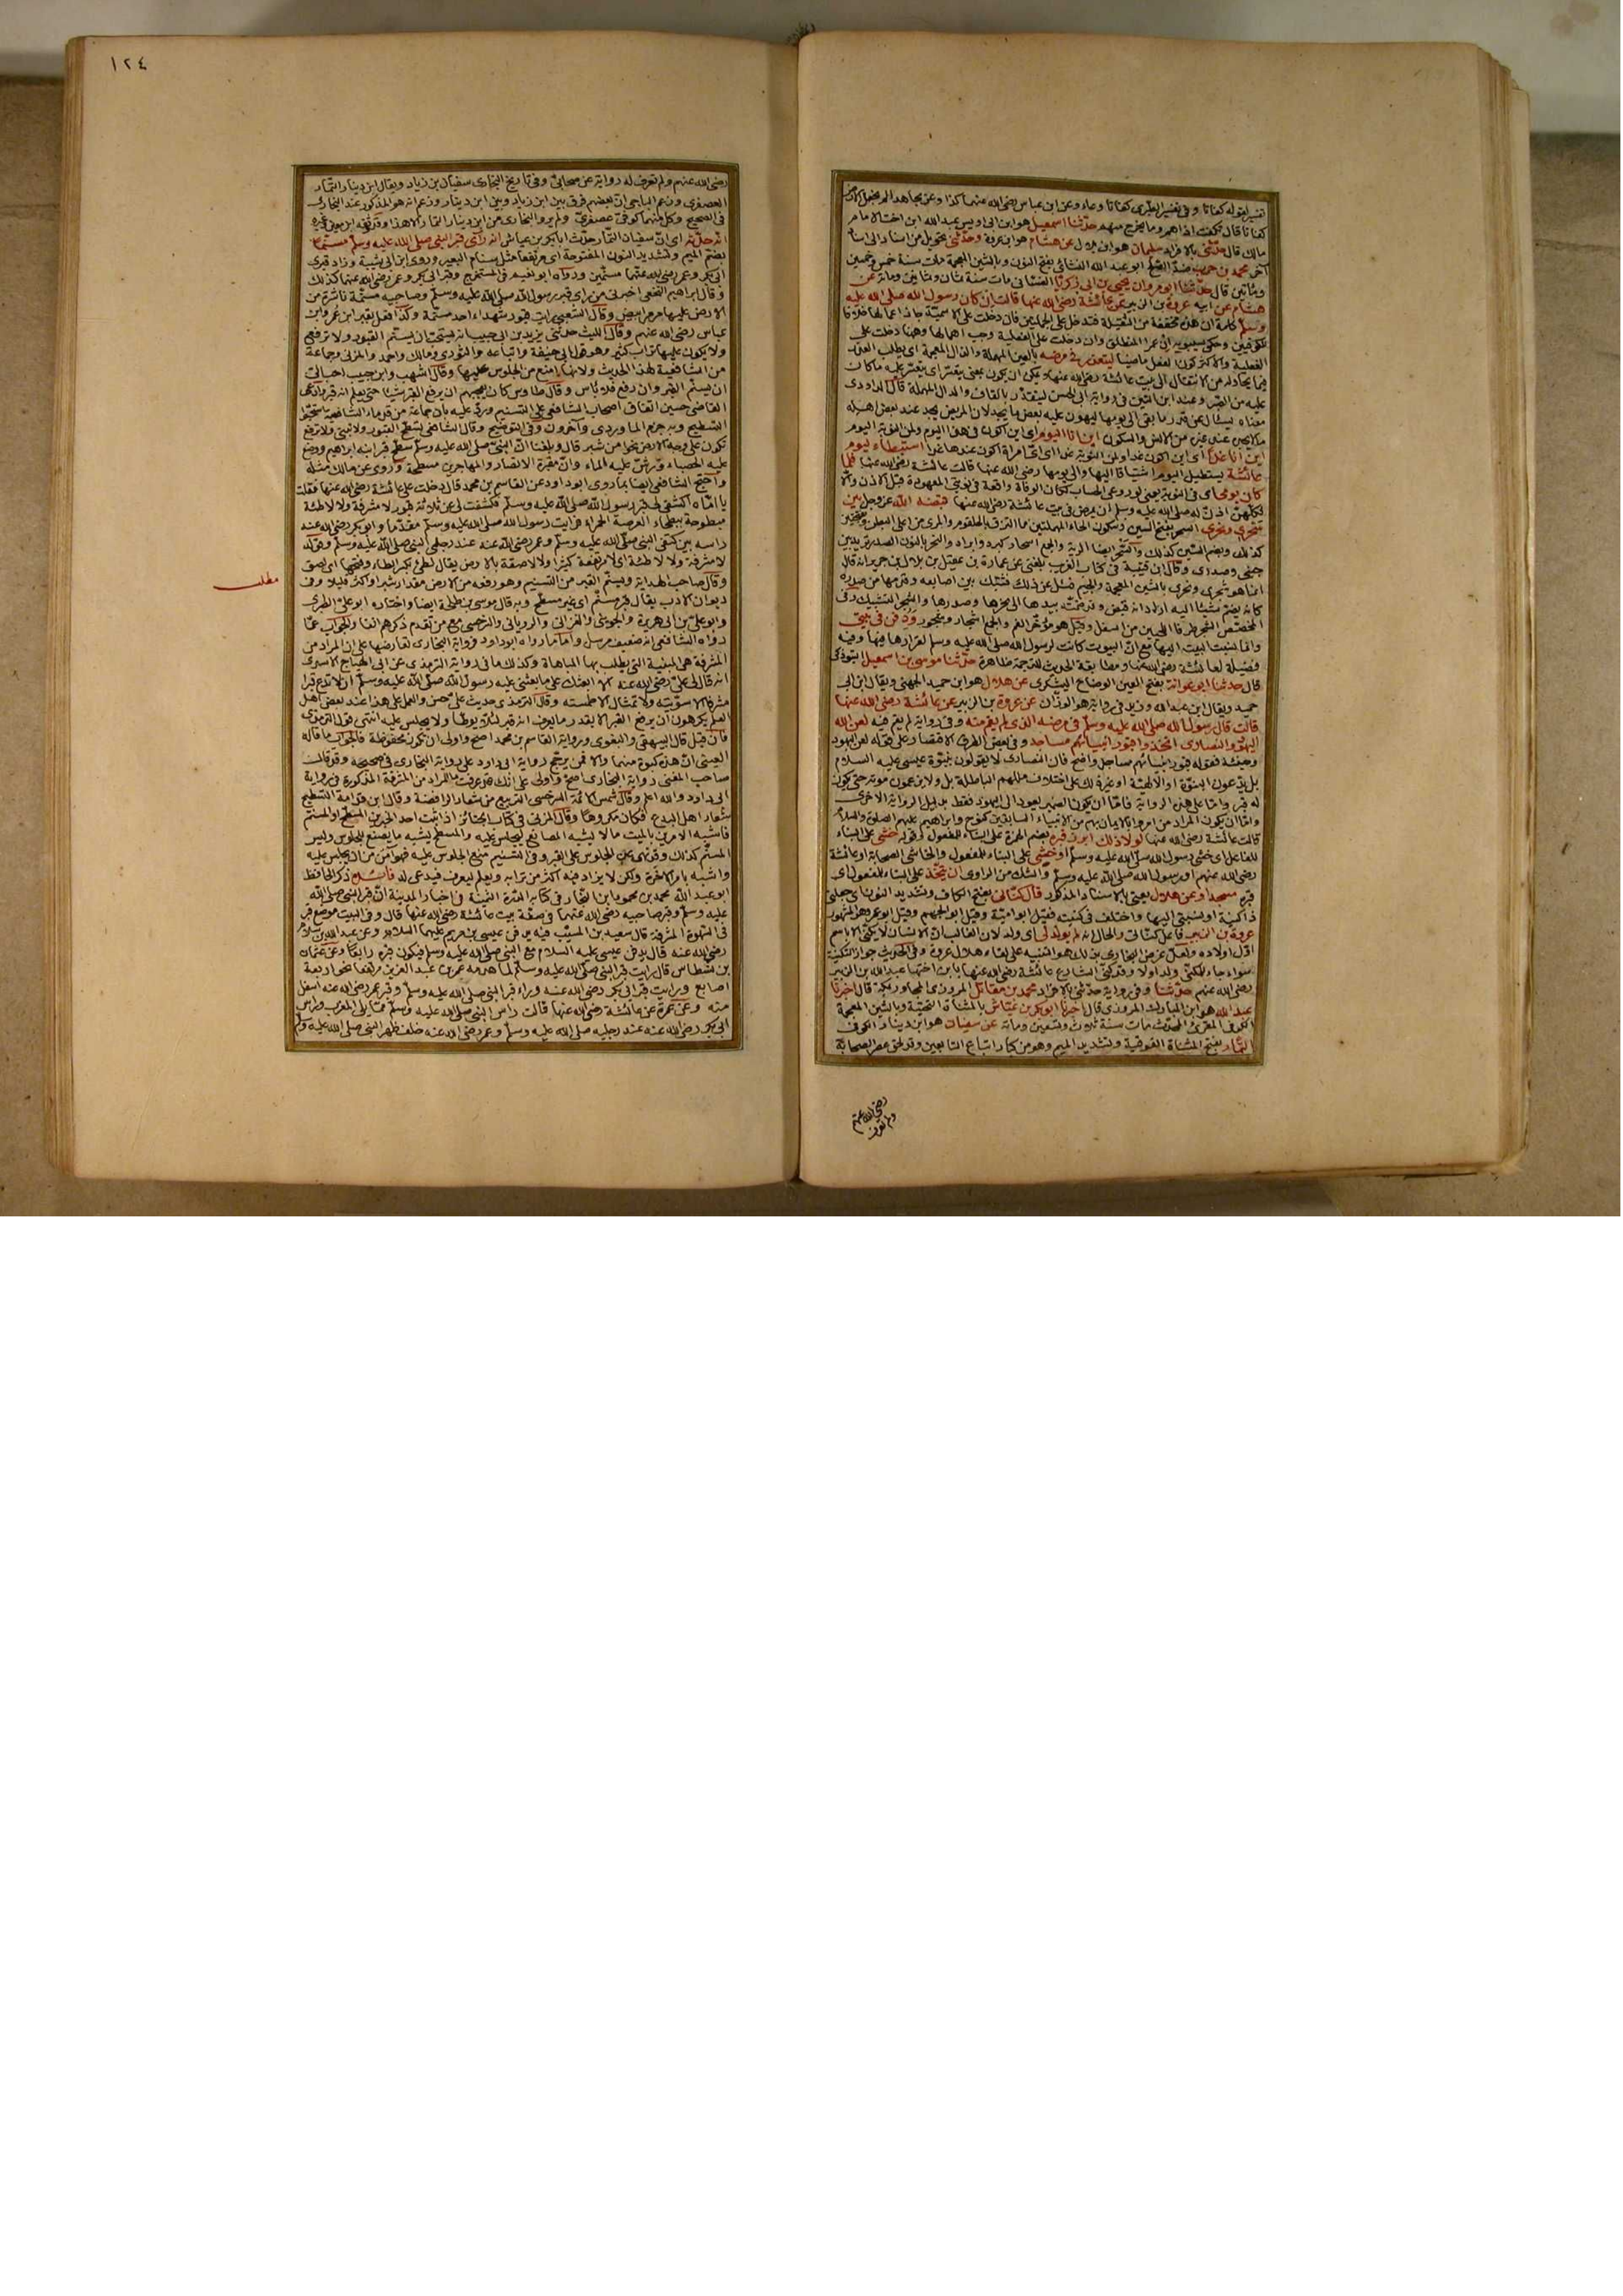 تفسير لقوله كفاتا وفي تفسير الطبري كفاتا وعاء وعن ابن عباس رضى الله عنهما كذا وعن مجاهد
كفاتا قال تكفت اذاهم وما يخرج منهم حدّثنا اسمعيل هو ابن ابى اويس عبد الله ابن اخت الامام
مالك قال حدّثنى بالافراد سليمان هو ابن بلال عن هشام هو ابن عروة وحدّثنى بتحويل من اسناد الى اسناد
آخر محمد بن حرب ضدّ الصّلح ابو عبد الله النشائى بفتح النون وبالشين المعجمة مات سنة خمس وخمسين
ومأتين قال حدّثنا ابو مروان يحيى بن ابى زكريّا الغسّانى مات سنة ثمان وثمانين ومائة عن
هشام عن ابيه عروة بن الزبير عن عائشة رضى الله عنها قالت ان كان رسول الله صلى الله عليه
وسلم كلمة ان هذه مخففة من المثقيلة فتدخل على الجملتين فان دخلت على الاسميّة جاز اعمالها خلافا
للكوفيين وحكى سيبويه ان عمرا لمنطلق وان دخلت على الفعلية وجب اهمالها وههنا دخلت على
الفعلية والاكثر كون الفعل ماضيا ليتعذر فى مرضه بالعين المهملة والذال المعجمة اى يطلب العذر
فيما يحاوله من الانتقال الى بيت عائشة رضى الله عنها ويمكن ان يكون بمعنى يتعسّر اى يتعسّر عليه ما كان
عليه من الصّبر وعند ابن التين فى رواية ابى الحسن ليتقدّر بالقاف والدال المهملة قال الداودى
معناه يسئال عن قدر ما بقى الى يومها ليهون عليه بعض ما يجد لان المريض يجد عند بعض اهله
ما لا يجد عند غيره من الانس والسكون اين انا اليوم اى اين اكون فى هذا اليوم ولمن النوبة اليوم
اين انا غدًا اى اين اكون غدا ولمن النوبة غدا اى ايّة امراة اكون عندها غدا استبطاء ليوم
عائشة يستطيل اليوم اشتياقا اليها والى يومها رضى الله عنها قالت عائشة رضى الله عنها فلما
كان يومى اى فى النوبة يعنى لو روعى الحساب لكان الوفاة واقعة فى نوبتى المعهودة قبل الاذن والّا
فكلّهنّ اذنّ له صلى الله عليه وسلم ان يمرض فى بيت عائشة رضى الله عنها قبضه الله عز وجل بين
سَحرى ونحرى السحر بفتح السين وسكون الحاء المهملتين ما التزق بالحلقوم والمرى من اعلى البطن
كذلك وبضم السين كذلك والسّحر ايضا الرية والجمع اسحار كبرد وابراد والنحر بالنون الصدر تريد بين
جنبى وصدرى وقال ابن قتيبة فى كتاب الغريب بلغنى عن عمارة بن عقيل بن بلال بن جرير انه قال
انما هو شجرى ونحرى بالشين المعجمة والجيم فسئل عن ذلك فشبّك بين اصابعه وقدّمها من صدره
كانه يضمّ شيئا اليه اراد انه قبض وقد ضمّته بيدها الى نحرها وصدرها والشجر التشبيك وفى
المخصّص الشجر طرفا اللحيين من اسفل وقيل هو مؤخّر الفم والجمع اشجار وشجور ودفن فى بيتى
وانما نسبت البيت اليها مع انّ البيوت كانت لرسول الله صلى الله عليه وسلم لقرارها فيها وفيه
فضيلة لعائشة رضى الله عنها ومطابقة الحديث للترجمة ظاهرة حدّثنا موسى بن اسمعيل التبوذكى
قال حدثنا ابو عوانة بفتح العين الوضاح اليشكرى عن هلال هو ابن حميد الجهنى ويقال ابن ابى
حميد ويقال ابن عبد الله وزيد فى رواية هو الوزّان عن عروة بن الزبير عن عائشة رضى الله عنها
قالت قال رسول الله صلى الله عليه وسلّم فى مرضه الذى لم يقم منه وفى رواية لم يقم فيه لعن الله
اليهود والنصارى اتخذوا قبور انبيائهم مساجد وفى بعض الطرق الاقتصار على قوله لعن اليهود
وحينئذ فقوله قبور انبيائهم مساجد واضح فان النصارى لا يقولون بنبوّة عيسى عليه السلام
بل يدّعون البنوّة او الالهيّة او غير ذلك على اختلاف مللهم الباطلة بل ولا يزعمون موته حتى يكون
له قبر وامّا على هذه الرواية فامّا ان يكون الضمير يعود الى اليهود فقط بدليل الرواية الاخرى
وامّا ان يكون المراد من امروا بالايمان بهم من الانبياء السابقين كنوح وابراهيم عليهم الصلوة والسلام
قالت عائشة رضى الله عنها لولا ذلك ابرز قبره بضم الهمزة على البناء للمفعول وقوله خشى على البناء
للفاعل اى خشى رسول الله صلى الله عليه وسلم او خُشى على البناء للمفعول والخاشى الصحابة او عائشة
رضى الله عنهم او رسول الله صلى الله عليه وسلّم والشك من الراوى ان يتّخذ على البناء للمفعول اى
قبره مسجدا وعن هلال يعنى بالاسناد المذكور قال كنّانى بفتح الكاف وتشديد النون اى جعلنى
ذا كنية او نسبنى اليها واختلف فى كنيته فقيل ابو اميّة وقيل ابو الجهم وقيل ابو عمرو هو المشهور
عروة بن الزبير فاعل كنّانى والحال انه لم يولد لى اى ولد لان الغالب ان الانسان لا يكنّى الا باسم
اوّل اولاده ولعلّ غرض البخارى بذلك هو التنبيه على لقاء هلال عروة وفى الحديث جواز التكنية
سواء جاء للمكنّى ولد اولا وقد كنّى الشارع عائشة رضى الله عنها بابن اختها عبد الله بن الزبير
رضى الله عنهم حدّثنا وفى رواية حدّثنى بالافراد محمد بن مقاتل المروزى المجاور بمكة قال اخبرنا
عبد الله هو ابن المبارك المروزى قال اخبرنا ابو بكر بن عيّاش بالمثناة التحتيّة وبالشين المعجمة
الكوفى المقرئ المحدّث مات سنة ثلاث وتسعين ومائة عن سفيان هو ابن دينار الكوفى
التمّار بفتح المثناة الفوقية وتشديد الميم وهو من كبار اتباع التابعين وقد لحق عصر الصحابة
رضى الله عنهم
ولم تعرف
١٢٤
رضى الله عنهم ولم تعرف له رواية عن صحابىّ وفى تاريخ البخارى سفيان بن زياد ويقال ابن دينار التمار
العصفرى وزعم الباجى ان بعضهم فرق بين ابن زياد وبين ابن دينار وزعم انه هو المذكور عند البخارى
فى الصحيح وكل منهما كوفى عصفرىّ ولم يرو البخارى من ابن دينار التمار الا هذا وقد وثّقه ابن معين وغيره
انّه حدّثه اى انّ سفيان التمّار حدّث ابا بكر بن عياش انه رأى قبر النبى صلى الله عليه وسلّم مسنّما
بضمّ الميم وتشديد النون المفتوحة اى مرتفعا مثل سنام البعير وروى ابن ابى شيبة وزاد وقبر
ابى بكر وعمر رضى الله عنهما مسنّمين ورواه ابو نعيم فى المستخرج وقبر ابى بكر وعمر رضى الله عنهما كذلك
وقال ابراهيم النخعى اخبرنى من راى قبر رسول الله صلى الله عليه وسلّم وصاحبيه مسنّمة ناشزة من
الارض عليها مرمر ابيض وقال الشعبى رايت قبور شهداء احد مسنّمة وكذا فعل بقبر ابن عمر وابن
عباس رضى الله عنهم وقال الليث حدثنى يزيد بن ابى حبيب انه يستحبّ ان يسنّم القبور ولا ترفع
ولا يكون عليها تراب كثير وهو قول ابى حنيفة واتباعه والثورى ومالك واحمد والمزنى وجماعة
من الشافعية لهذا الحديث ولانها امنع من الجلوس عليها وقال اشهب وابن حبيب احبّ الىّ
ان يسنّم القبر وان رفع فلا باس وقال طاوس كان يعجبهم ان يرفع القبر شيئا حتى يعلم انه قبر وادّعى
القاضى حسين اتفاق اصحاب الشافعى على التسنيم وردّ عليه بان جماعة من قدماء الشافعية استحبّوا
التسطيح وبه جزم الماوردى وآخرون وفى التوضيح وقال الشافعى يسطّح القبور ولا تبنى ولا ترفع
تكون على وجه الارض نحوا من شبر قال وبلغنا انّ النبى صلى الله عليه وسلّم سطّح قبر ابنه ابراهيم ووضع
عليه الحصباء ورشّ عليه الماء وانّ مقبرة الانصار والمهاجرين مسطّحة وروى عن مالك مثله
واحتجّ الشافعى ايضا بما روى ابو داود عن القاسم بن محمد قال دخلت على عائشة رضى الله عنها فقلت
يا امّاه اكشفى لى قبر رسول الله صلى الله عليه وسلّم فكشفت لى عن ثلاثة قبور لا مشرفة ولا لاطئة
مبطوحة ببطحاء العرصة الحمراء فرايت رسول الله صلى الله عليه وسلّم مقدّما وابو بكر رضى الله عنه
راسه بين كتفى النبى صلّى الله عليه وسلّم وعمر رضى الله عنه عند رجلى النبى صلى الله عليه وسلّم وقوله
لا مشرفة ولا لاطئة اى لا مرتفعة كثيرا ولا لاصقة بالارض يقال لطئ بكسر الطاء وفتحها اى لصق
وقال صاحب الهداية ويسنّم القبر من التسنيم وهو رفعه من الارض مقدار شبر او اكثر قليلا وفى
ديوان الادب يقال قبر مسنّم اى غير مسطّح وبه قال موسى بن طلحة ايضا واختاره ابو علىّ الطبرى
وابو علىّ بن ابى هريرة والجوينى والغزالى والرويانى والسرخسى مع من تقدم ذكرهم آنفا والجواب عمّا
رواه الشافعى انه ضعيف مرسل وامّا ما رواه ابو داود فرواية البخارى تعارضها على ان المراد من
المشرفة هى المبنية التى يطلب بها المباهاة وكذلك ما فى رواية الترمذى عن ابى الهياج الاسدى
انه قال لى علىّ رضى الله عنه الا ابعثك على ما بعثنى عليه رسول الله صلى الله عليه وسلّم ان لا تدع قبرا
مشرفا الا سوّيته ولا تمثالا الا طمسته وقال الترمذى حديث علىّ حسن والعمل على هذا عند بعض اهل
العلم يكرهون ان يرفع القبر الا بقدر ما يعرف انه قبر لئلّا يوطأ ولا يجلس عليه انتهى قول الترمذى
فان قيل قال البيهقى والبغوى ورواية القاسم بن محمد اصح واولى ان تكون محفوظة فالجواب ما قاله
العينى انّ هذه كبوة منهما والا فمن يرجّح رواية ابى داود على رواية البخارى فى صحيحه وقد قال
صاحب المغنى رواية البخارى اصحّ واولى على انك قد عرفت ما المراد من المشرفة المذكورة فى رواية
ابى داود والله اعلم وقال شمس الائمة السرخسى التربيع من شعار الرافضة وقال ابن قدامة التسطيح
شعار اهل البدع فكان مكروها وقال المزنى فى كتاب الجنائز اذا ثبت احد الخبرين المسطّح او المسنّم
فاشبه الامرين بالميت ما لا يشبه المصانع ليجلس عليه والمسطّح يشبه ما يصنع للجلوس وليس
المسنّم كذلك وقد نهى عن الجلوس على القبر وفى التسنيم منع الجلوس عليه فهو امنع من ان يجلس عليه
واشبه بامر الاخرة ولكن لا يزاد فيه اكثر من ترابه ويعلم ليعرف فيدعى له فائدة ذكر الحافظ
ابو عبد الله محمد بن محمود ابن النجّار فى كتابه الدرّة الثمينة فى اخبار المدينة انّ قبر النبى صلى الله
عليه وسلّم وقبر صاحبيه رضى الله عنهما فى صفّة بيت عائشة رضى الله عنها قال وفى البيت موضع قبر
فى السّهوة المشرقة قال سعيد بن المسيّب فيه يدفن عيسى بن مريم عليهما السلام وعن عبد الله بن سلام
رضى الله عنه قال يدفن عيسى عليه السلام مع النبى صلى الله عليه وسلم فيكون قبره رابعا وعن عثمان
بن نسطاس قال رايت قبر النبى صلى الله عليه وسلّم لما هدمه عمر بن عبد العزيز مرتفعا نحو اربعة
اصابع ورايت قبر ابى بكر رضى الله عنه وراء قبر النبى صلى الله عليه وسلّم وقبر عمر رضى الله عنه اسفل
منه وعن عمرة عن عائشة رضى الله عنها قالت راس النبى صلى الله عليه وسلّم ممّا يلى المغرب وراس
ابى بكر رضى الله عنه عند رجليه صلى الله عليه وسلّم وعمر رضى الله عنه خلف ظهر النبى صلى الله عليه وسلم
مطلب